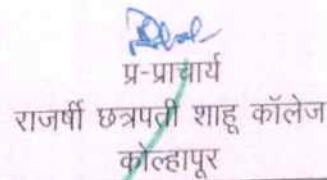 प्र-प्राचार्य
राजर्षी छत्रपती शाहू कॉलेज
कोल्हापूर